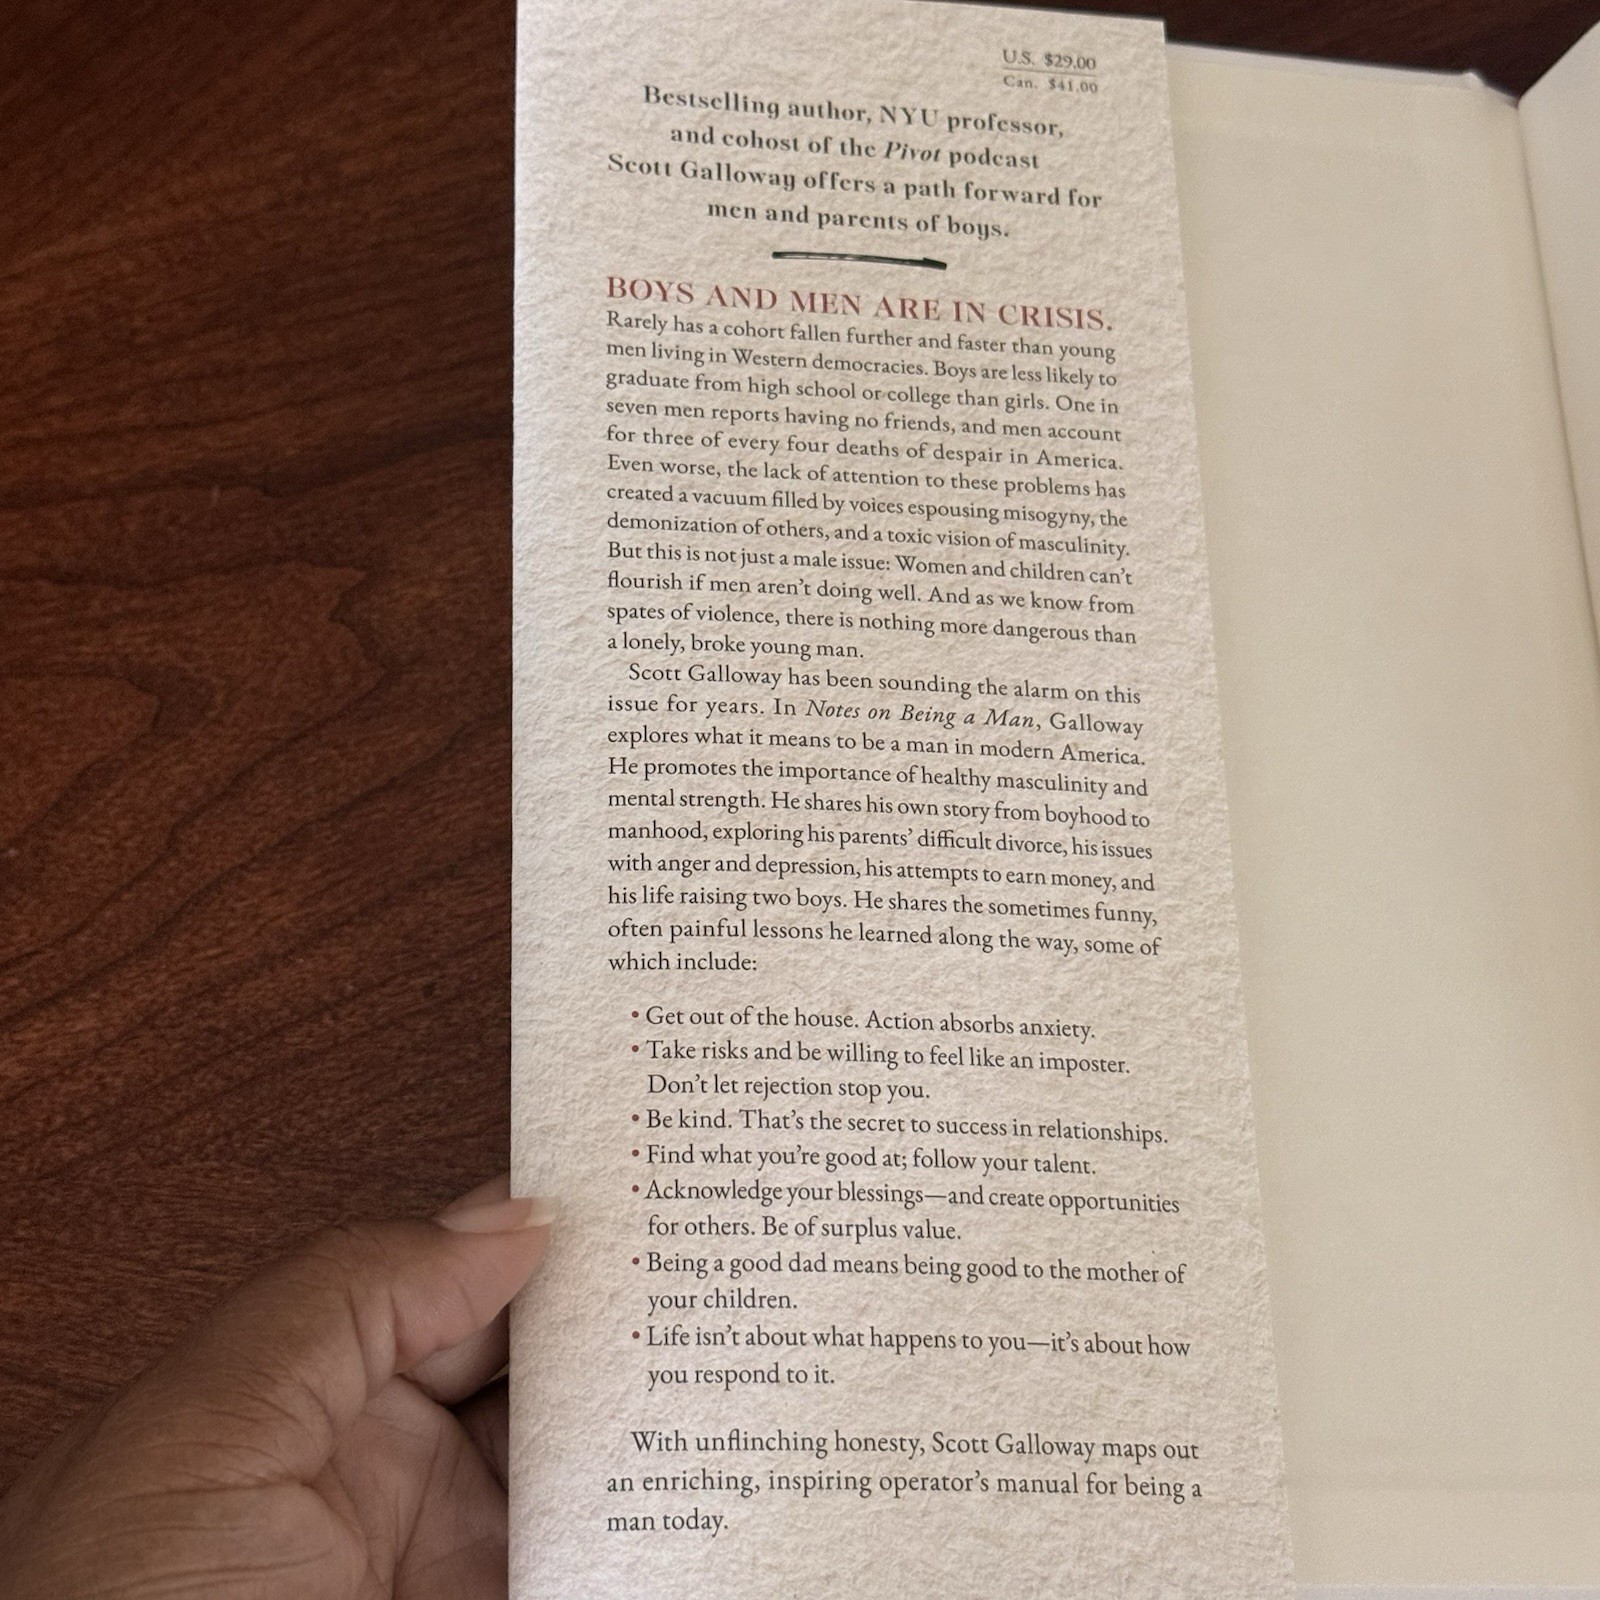 U.S. $29.00
Can. $41.00
Bestselling author, NYU professor,
and cohost of the Pivot podcast
Scott Galloway offers a path forward for
men and parents of boys.
BOYS AND MEN ARE IN CRISIS.
Rarely has a cohort fallen further and faster than young
men living in Western democracies. Boys are less likely to
graduate from high school or college than girls. One in
seven men reports having no friends, and men account
for three of every four deaths of despair in America.
Even worse, the lack of attention to these problems has
created a vacuum filled by voices espousing misogyny, the
demonization of others, and a toxic vision of masculinity.
But this is not just a male issue: Women and children can’t
flourish if men aren’t doing well. And as we know from
spates of violence, there is nothing more dangerous than
a lonely, broke young man.
Scott Galloway has been sounding the alarm on this
issue for years. In Notes on Being a Man, Galloway
explores what it means to be a man in modern America.
He promotes the importance of healthy masculinity and
mental strength. He shares his own story from boyhood to
manhood, exploring his parents’ difficult divorce, his issues
with anger and depression, his attempts to earn money, and
his life raising two boys. He shares the sometimes funny,
often painful lessons he learned along the way, some of
which include:
• Get out of the house. Action absorbs anxiety.
• Take risks and be willing to feel like an imposter.
Don’t let rejection stop you.
• Be kind. That’s the secret to success in relationships.
• Find what you’re good at; follow your talent.
• Acknowledge your blessings—and create opportunities
for others. Be of surplus value.
• Being a good dad means being good to the mother of
your children.
• Life isn’t about what happens to you—it’s about how
you respond to it.
With unflinching honesty, Scott Galloway maps out
an enriching, inspiring operator’s manual for being a
man today.